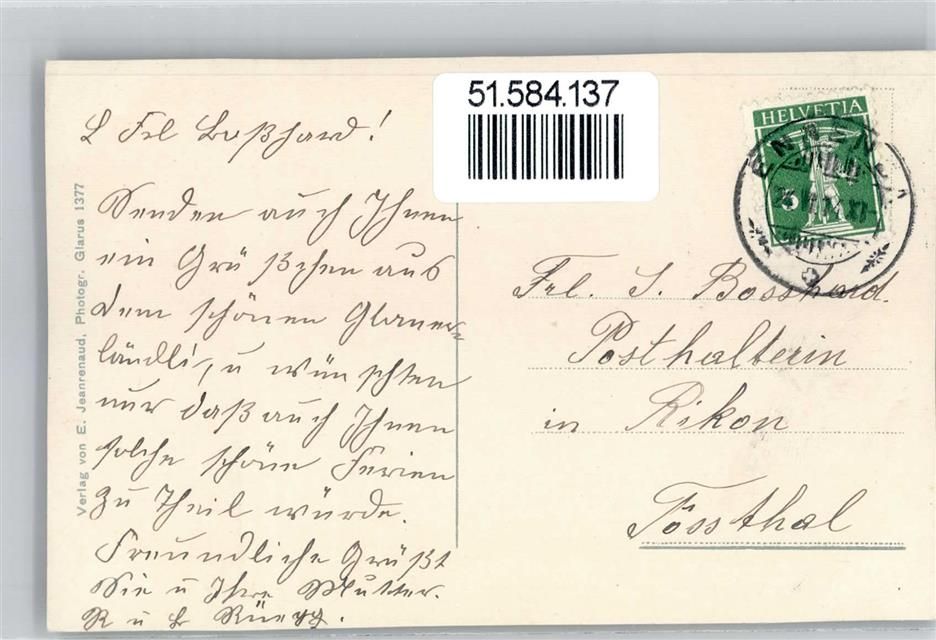 51.584.137
HELVETIA
5
L Frl Boßhard!
Senden auch Ihnen
ein Grüßchen aus
dem schönen Glarner-
ländli, u wünschten
nur daß auch Ihnen
solche schöne Ferien
zu Theil würde.
Freundliche Grüßt
Sie u Ihre Mutter.
R u B Rüegg.
Frl. S. Bosshard.
Posthalterin
in Rikon
Tössthal
Verlag von E. Jeanrenaud, Photogr. Glarus 1377